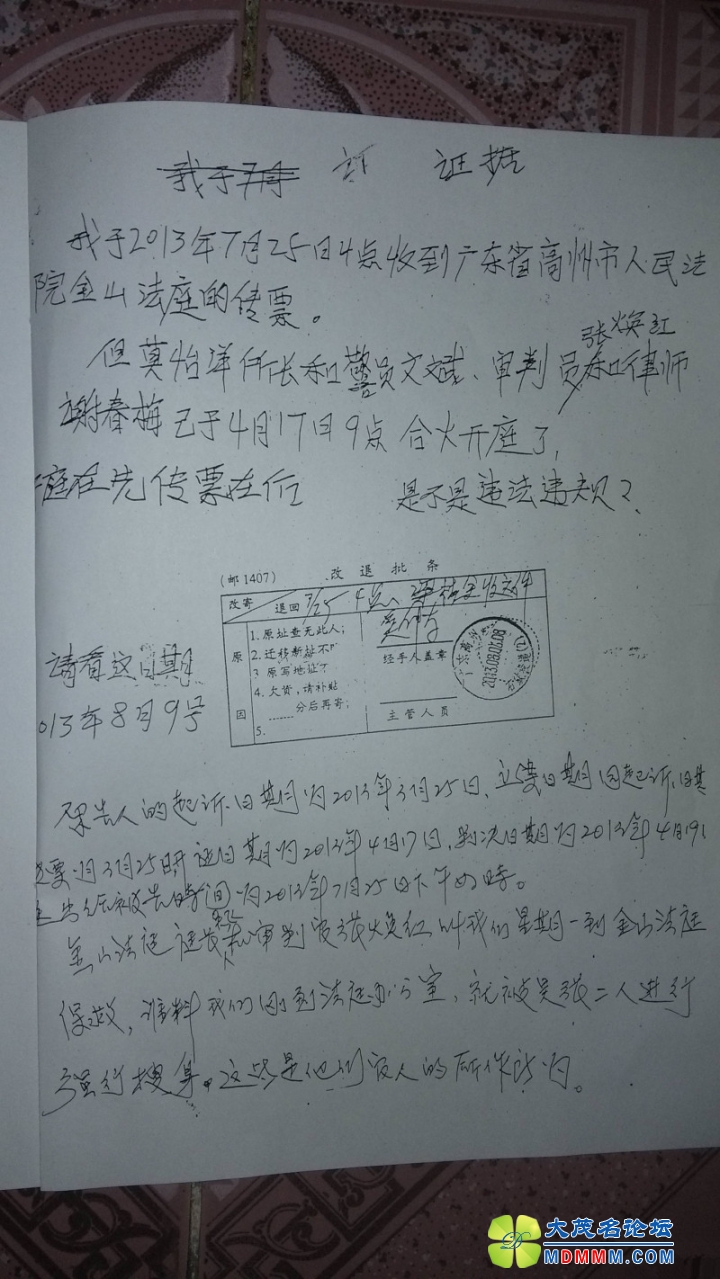 我于 证据
我于2013年7月25日4点收到广东省高州市人民法
院金山法庭的传票。
张焕红
但莫怡详所长和警员文斌、审判员和律师
谢春梅已于4月17日9点合火开庭了,
庭在先传票在后 是不是违法违规?
(邮1407) 改退批条
改寄 退回 7/25 4点
原因
1. 原址查无此人;
2. 迁移新址不
3. 原写地址
4. 欠资,请补贴
……分后再寄;
5.
经手人盖章
主管人员
2013.08.08
请看这日期
013年8月9号
原告人的起诉日期为2013年3月25日,立案日期因起诉日期
3月25日开庭日期为2013年4月17日,判决日期为2013年4月19
被告时间为2013年7月25日下午四时。
金山法庭庭长和审判员张火焕红叫我们星期一到金山法庭
谁料我们刚到法庭办公室,就被吴张二人进行
强行搜身。这些是他们害人的所作所为。
大茂名论坛
MDMMM.COM